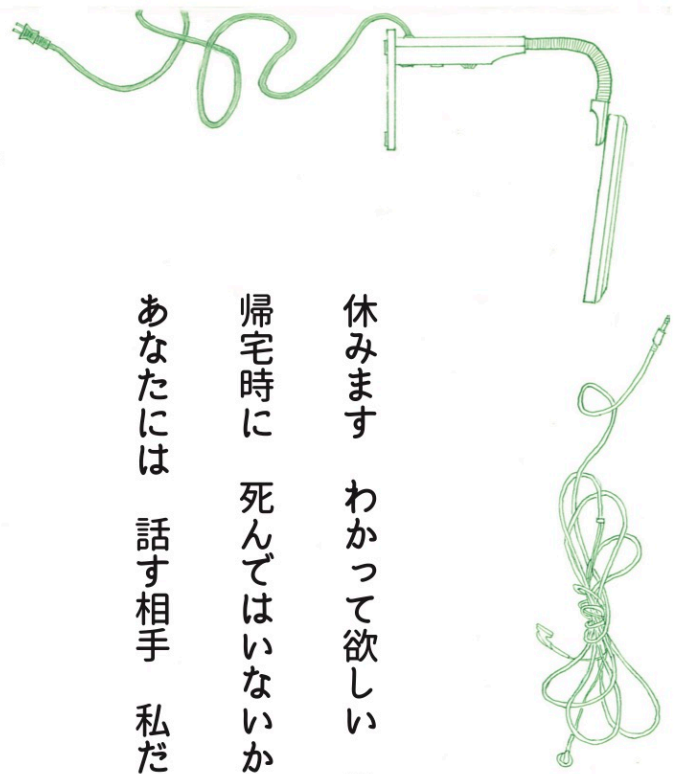 休みます　わかって欲しい
帰宅時に　死んではいないか
あなたには　話す相手　私だ